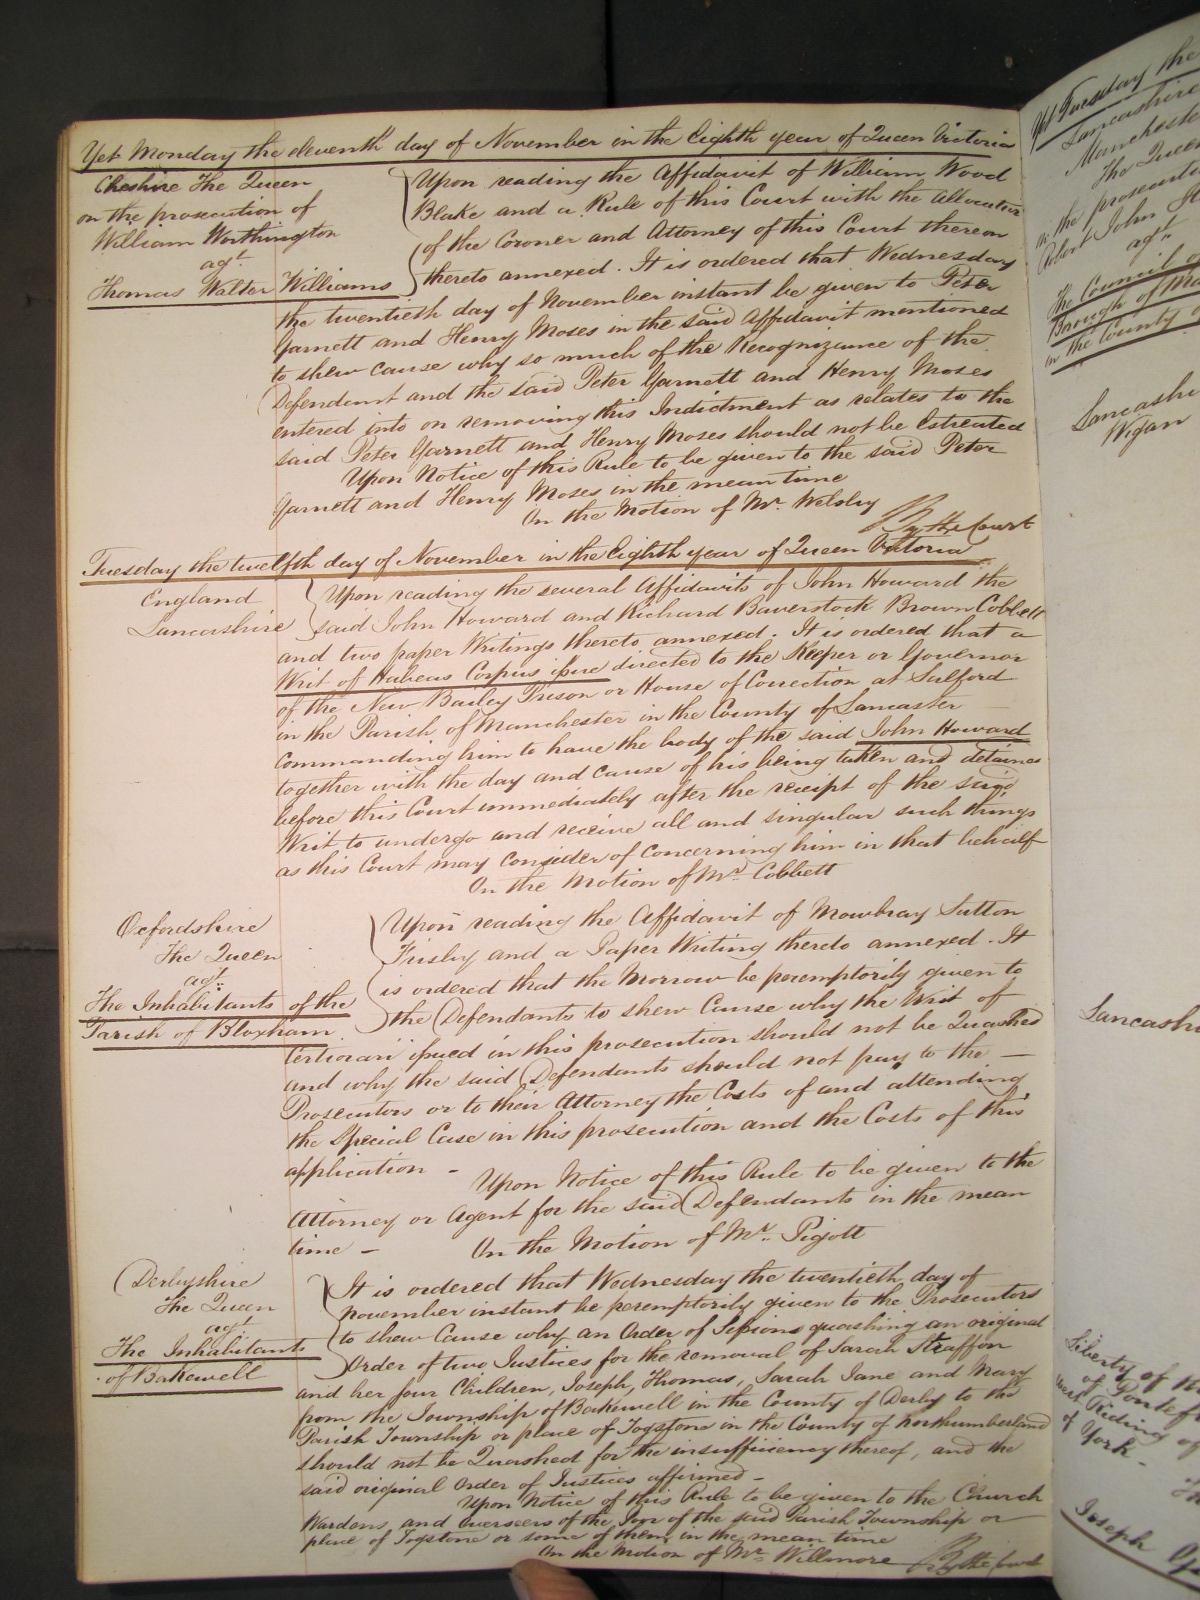 Yet Monday the eleventh day of November in the Eighth year of Queen Victoria
Cheshire The Queen
on the prosecution of
William Worthington
agt.
Thomas Walter Williams
Upon reading the Affidavit of William Wood
Blake and a Rule of this Court with the Allocatur
of the Coroner and Attorney of this Court thereon
thereto annexed. It is ordered that Wednesday
the twentieth day of November instant be given to Peter
Garnett and Henry Moses in the said Affidavit mentioned
to shew cause why so much of the Recognizance of the
Defendant and the said Peter Garnett and Henry Moses
entered into on removing this Indictment as relates to the
said Peter Garnett and Henry Moses should not be Estreated
Upon Notice of this Rule to be given to the said Peter
Garnett and Henry Moses in the mean time
On the Motion of Mr. Welsby
By the Court
Tuesday the twelfth day of November in the Eighth year of Queen Victoria
England
Lancashire
Upon reading the several Affidavits of John Howard the
said John Howard and Richard Baverstock Brown Cobbett
and two paper Writings thereto annexed. It is ordered that a
Writ of Habeas Corpus issue directed to the Keeper or Governor
of the New Bailey Prison or House of Correction at Salford
in the Parish of Manchester in the County of Lancaster
Commanding him to have the body of the said John Howard
together with the day and cause of his being taken and detained
before this Court immediately after the receipt of the said
Writ to undergo and receive all and singular such things
as this Court may consider of concerning him in that behalf
On the Motion of Mr. Cobbett
Oxfordshire
The Queen
agt.
The Inhabitants of the
Parish of Bloxham
Upon reading the Affidavit of Mowbray Sutton
Frisby and a Paper Writing thereto annexed. It
is ordered that the Morrow be peremptorily given to
the Defendants to shew Cause why the Writ of
Certiorari issued in this prosecution should not be Quashed
and why the said Defendants should not pay to the —
Prosecutors or to their Attorney the Costs of and attending
the Special Case in this prosecution and the Costs of this
application -
Upon Notice of this Rule to be given to the
Attorney or Agent for the said Defendants in the mean
time - On the Motion of Mr. Pigott
Derbyshire
The Queen
agt
The Inhabitants
of Bakewell
It is ordered that Wednesday the twentieth day of
November instant be peremptorily given to the Prosecutors
to shew Cause why an Order of Sessions quashing an original
Order of two Justices for the removal of Sarah Straffon
and her four Children, Joseph, Thomas, Sarah Jane and Mary
from the Township of Bakewell in the County of Derby to the
Parish Township or place of Togstone in the County of Northumberland
should not be Quashed for the insufficiency thereof, and the
said original Order of Justices affirmed -
Upon Notice of this Rule to be given to the Church
Wardens and Overseers of the Poor of the said Parish Township or
place of Togstone or some of them in the mean time
On the Motion of Mr. Willmore By the Court
Yet Tuesday the
Lancashire
Mancheste
The Queen
the prosecuti
Robert John
agt.
The Council o
Borough of Ma
in the County o
Lancashi
Wigan
Lancashi
Liberty of
of Pontef
West Riding of
of York -
Joseph